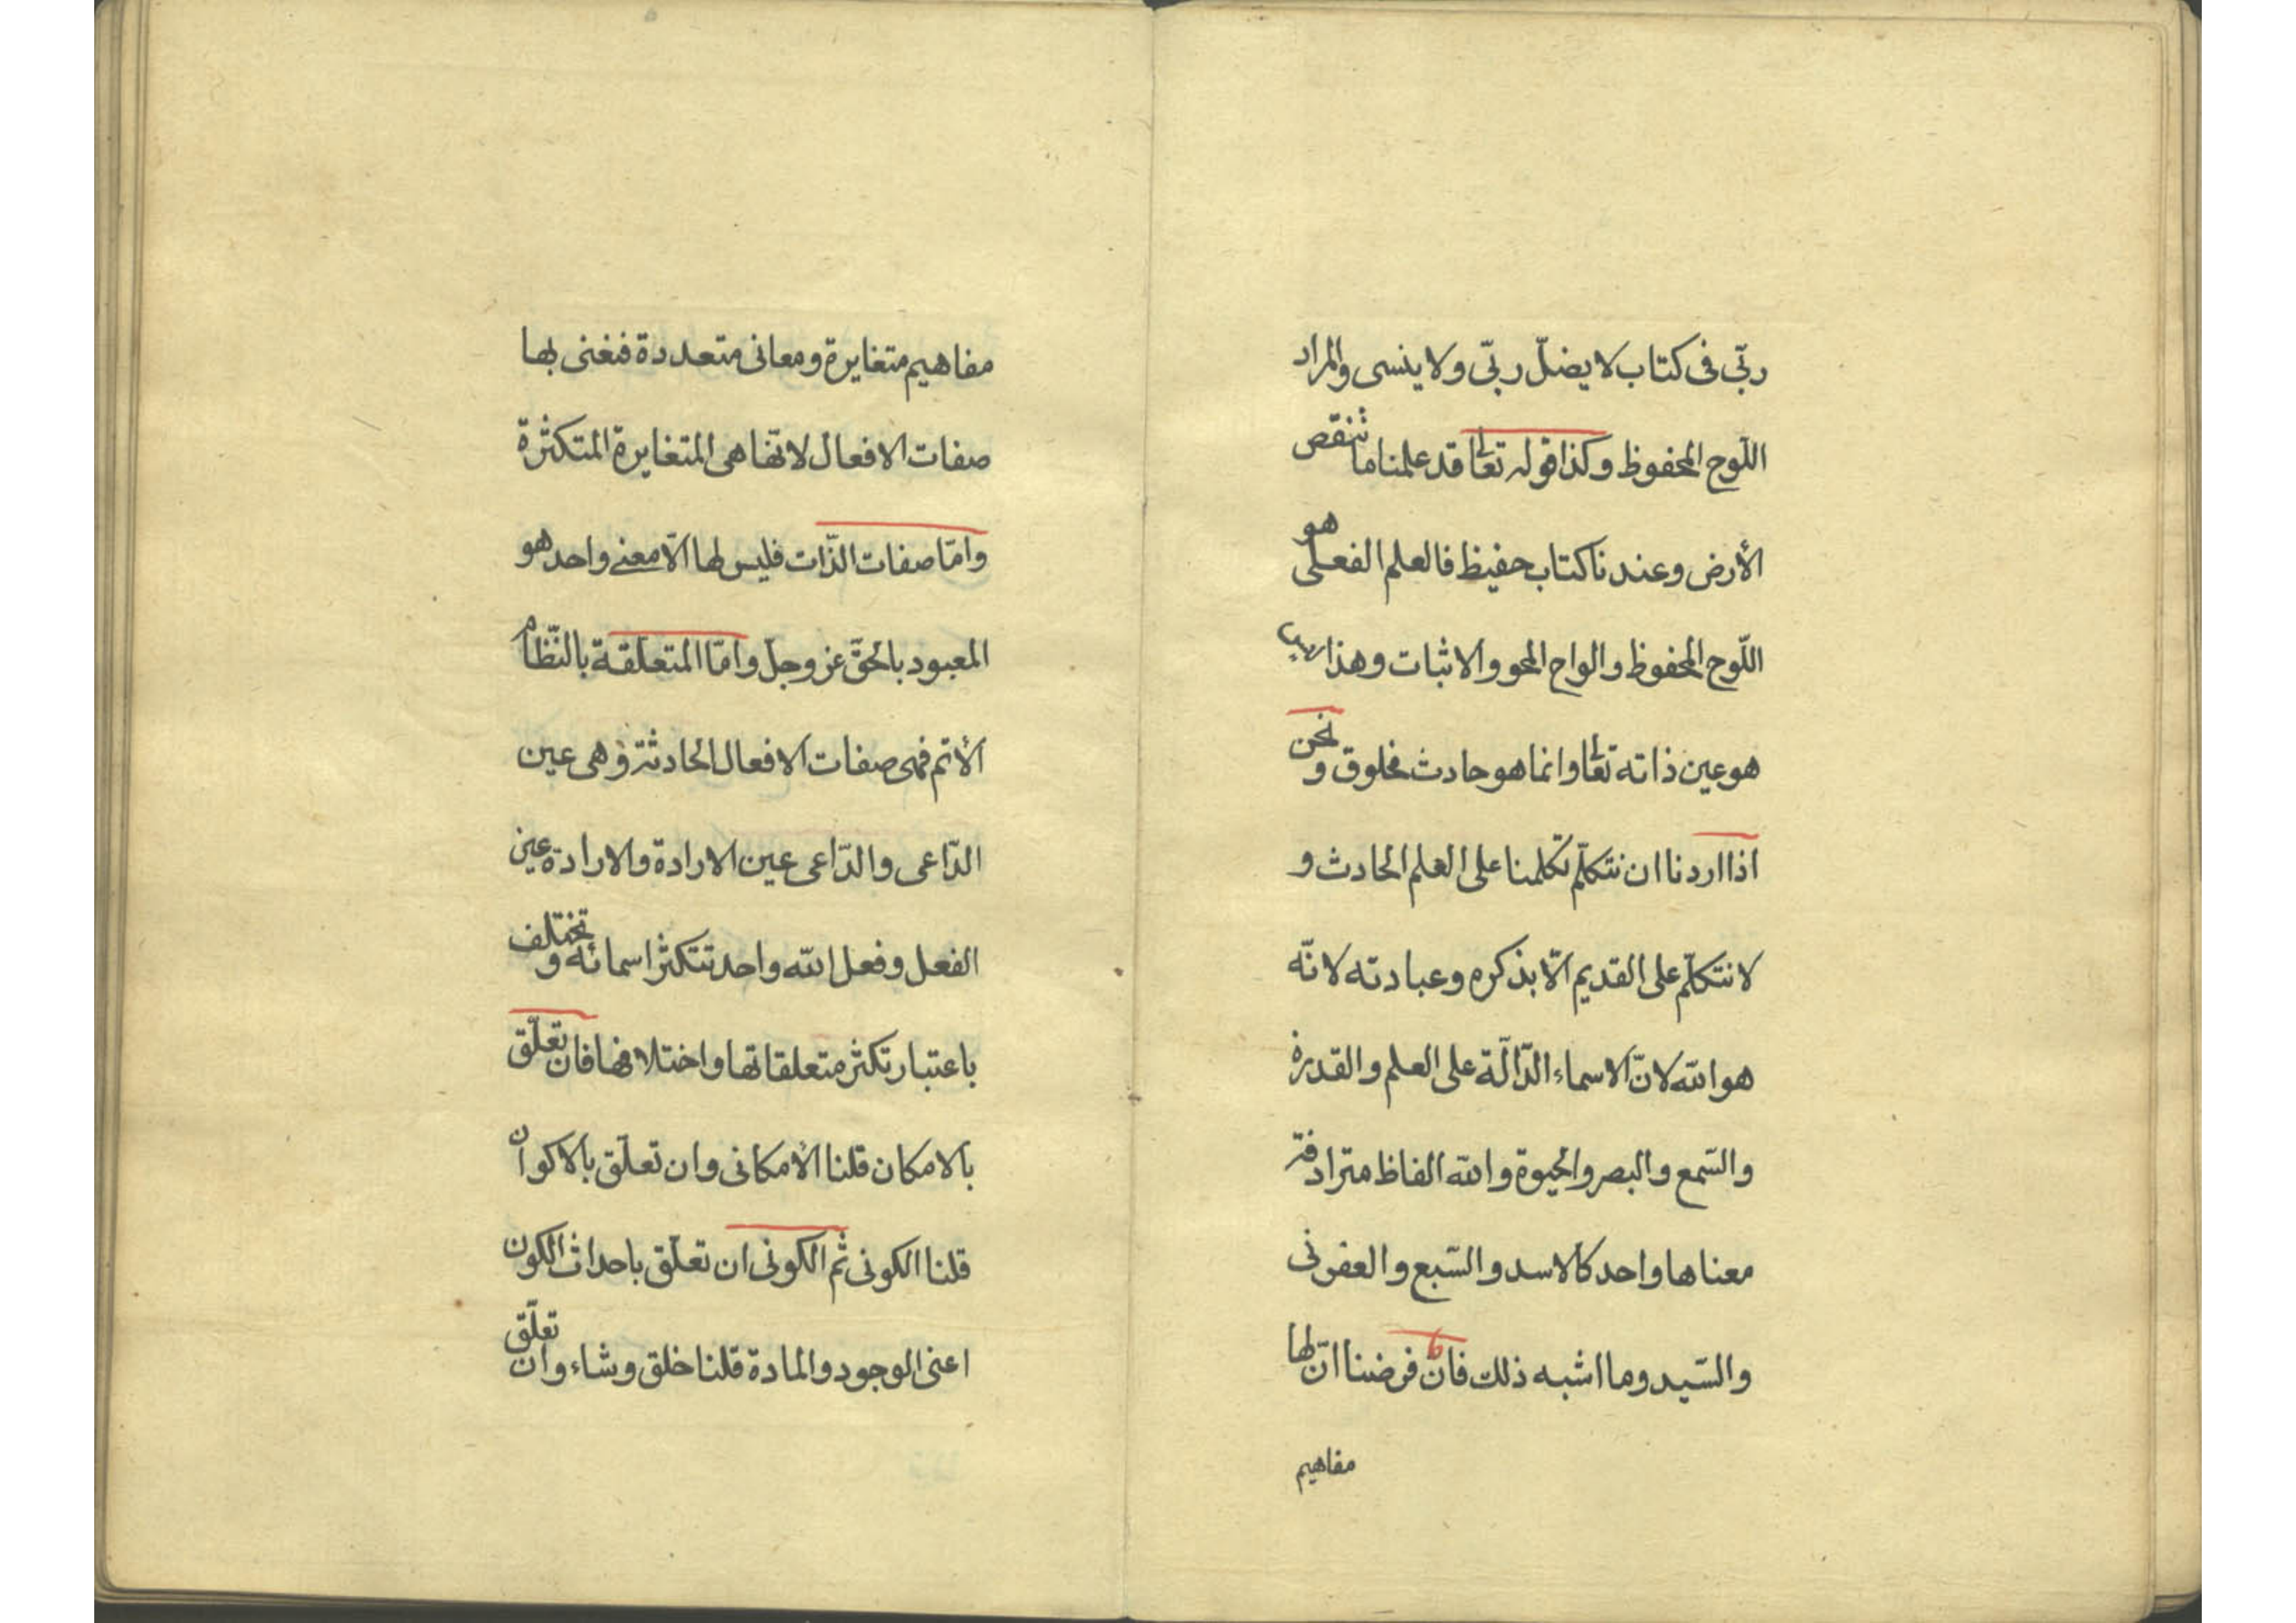 ربّى فى كتاب لا يضلّ ربّى ولا ينسى والمراد
اللّوح المحفوظ وكذا قوله تعالى قد علمنا ما تنقص
الأرض وعندنا كتاب حفيظ فالعلم الفعلى هو
اللّوح المحفوظ والواح المحو والاثبات وهذا ليس
هو عين ذاته تعالى وانما هو حادث مخلوق ونحن
اذا اردنا ان نتكلّم تكلمنا على العلم الحادث و
لا نتكلّم على القديم الّا بذكره وعبادته لانّه
هو الله لانّ الاسماء الدّالّة على العلم والقدرة
والسّمع والبصر والحيوة والله الفاظ مترادفة
معناها واحد كالاسد والسّبع والعفرنى
والسّيد وما اشبه ذلك فان فرضنا انّ لها
مفاهيم
مفاهيم متغايرة ومعانى متعددة فنعنى بها
صفات الافعال لانّها هى المتغايرة المتكثرة
وامّا صفات الذّات فليس لها الّا معنى واحد هو
المعبود بالحقّ عز وجلّ وامّا المتعلّقة بالنّظام
الأتم فهى صفات الافعال الحادثة وهى عين
الدّاعى والدّاعى عين الارادة والارادة عين
الفعل وفعل الله واحد تتكثر اسمائه وتختلف
باعتبار تكثر متعلقاتها واختلافها فان تعلّق
بالامكان قلنا الأمكانى وان تعلّق بالاكوان
قلنا الكونى ثم الكونى ان تعلّق باحداث الكون
اعنى الوجود والمادة قلنا خلق وشاء وان تعلّق